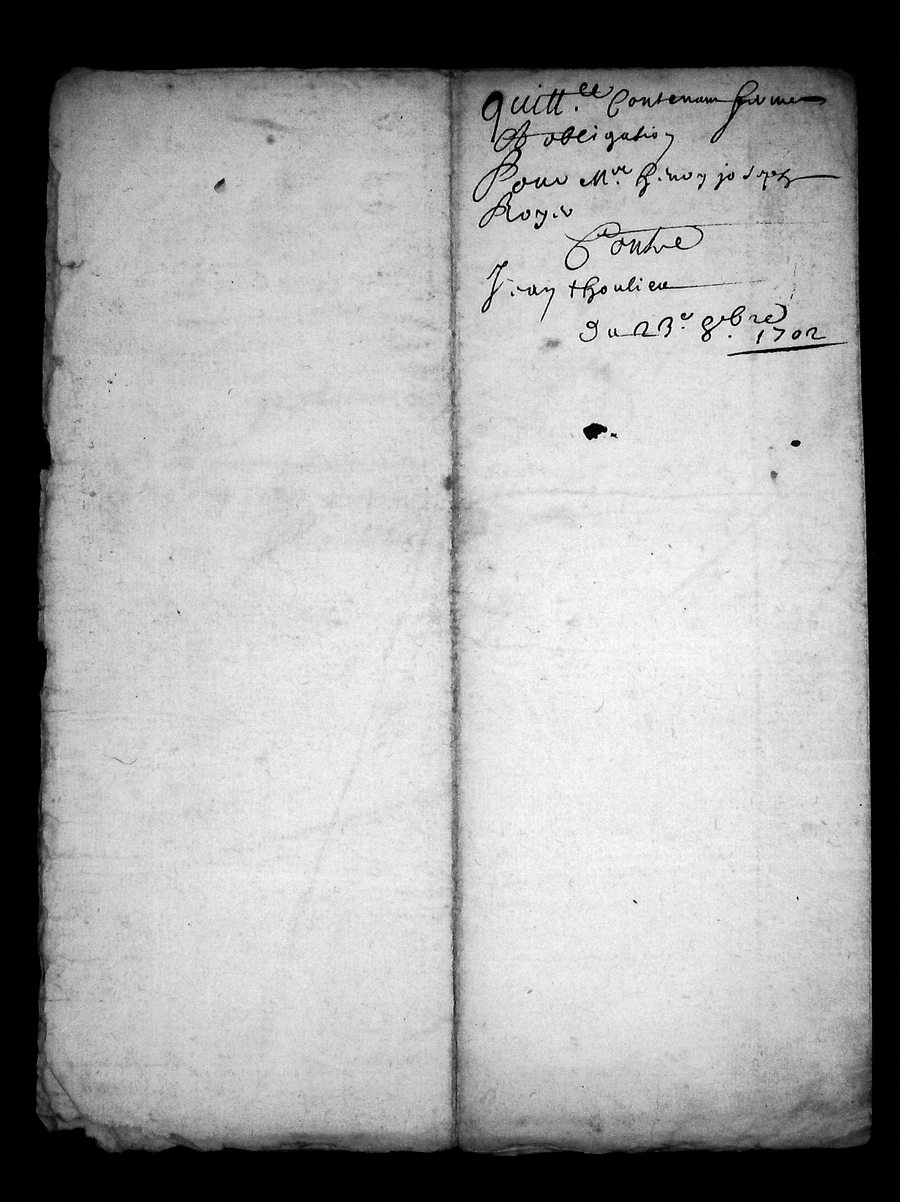 Quitt.ce Contenant ferme
Et obligation
Pour Mre henry joseph
Royer
Contre
Jean thoulieu
Du 23e 8.bre 1702